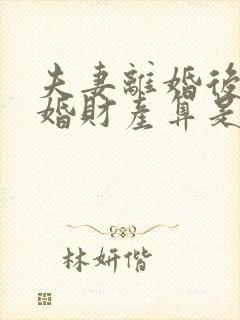 夫妻離婚後
婚財產算是
林妍偕